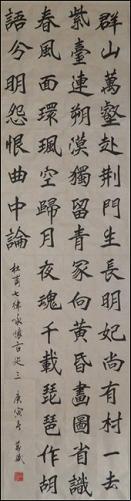 群山萬壑赴荆門生長明妃尚有村一去
紫臺連朔漠獨留青冢向黃昏畫圖省識
春風面環珮空歸月夜魂千載琵琶作胡
語分明怨恨曲中論
杜甫七律詠懷古迹之三 庚寅